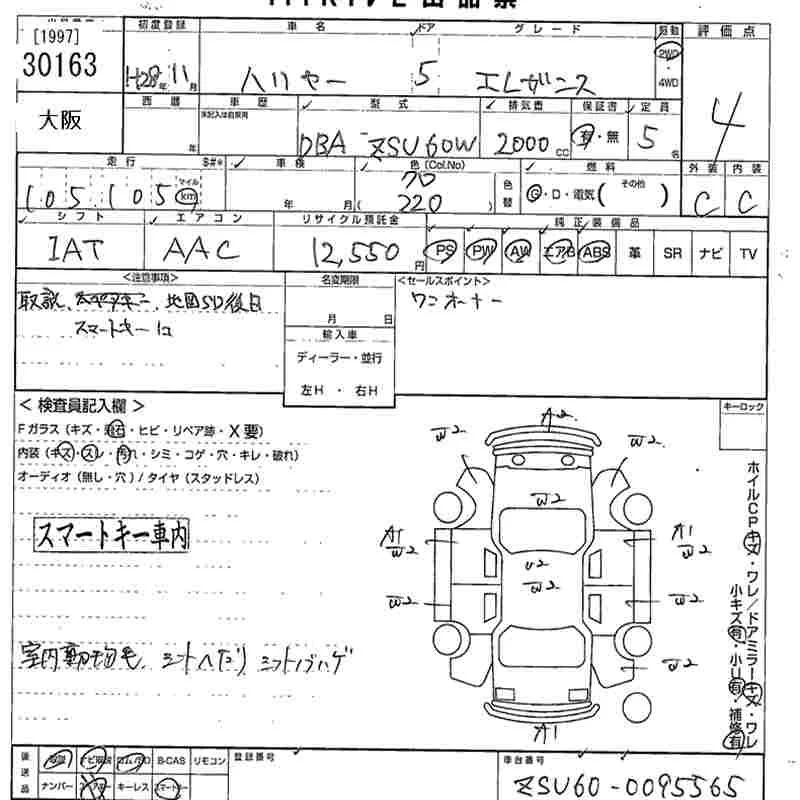 [1997]
30163
大阪
初度登録 車名 ドア グレード 駆動 評価点
H28年 11月 ハリヤー 5 エレガンス 2WD ・ 4WD 4
西暦 車歴 型式 排気量 保証書 定員
年 未記入は自家用 DBA ZSU60W 2000cc 有・無 5名
走行 S#* 車検 色(Col.No) 燃料 外装 内装
105,105 マイル km 年 月 クロ (220) 色替 G・D・電気( その他 ) C C
シフト エアコン リサイクル預託金 純正装備品
IAT AAC 12,550円 PS PW AW エアB ABS 革 SR ナビ TV
<注意事項> 名変期限 <セールスポイント>
取説、 地図SD後日 月 日 ワンオーナー
スマートキー1コ 輸入車
ディーラー・並行
左H ・ 右H
< 検査員記入欄 > キーロック
Fガラス(キズ・飛石・ヒビ・リペア跡・X要)
内装(キズ・スレ・汚れ・シミ・コゲ・穴・キレ・破れ)
オーディオ(無し・穴)/タイヤ(スタッドレス)
スマートキー車内
室内動物毛、シートヘタリ シートハゲ
A2
W2 W2
W2
A1 W2 A1 W2
U2
W2
W2 W2
W2
A1
ホイルCPキズ・ワレ/ドアミラーキズ・ワレ
小キズ有・小U有・補修有
後送品 取説 ナビ取説 ロム/SD B-CAS リモコン 登録番号 車台番号
ナンバー スペアキー キーレス スマートキー ZSU60-0095565